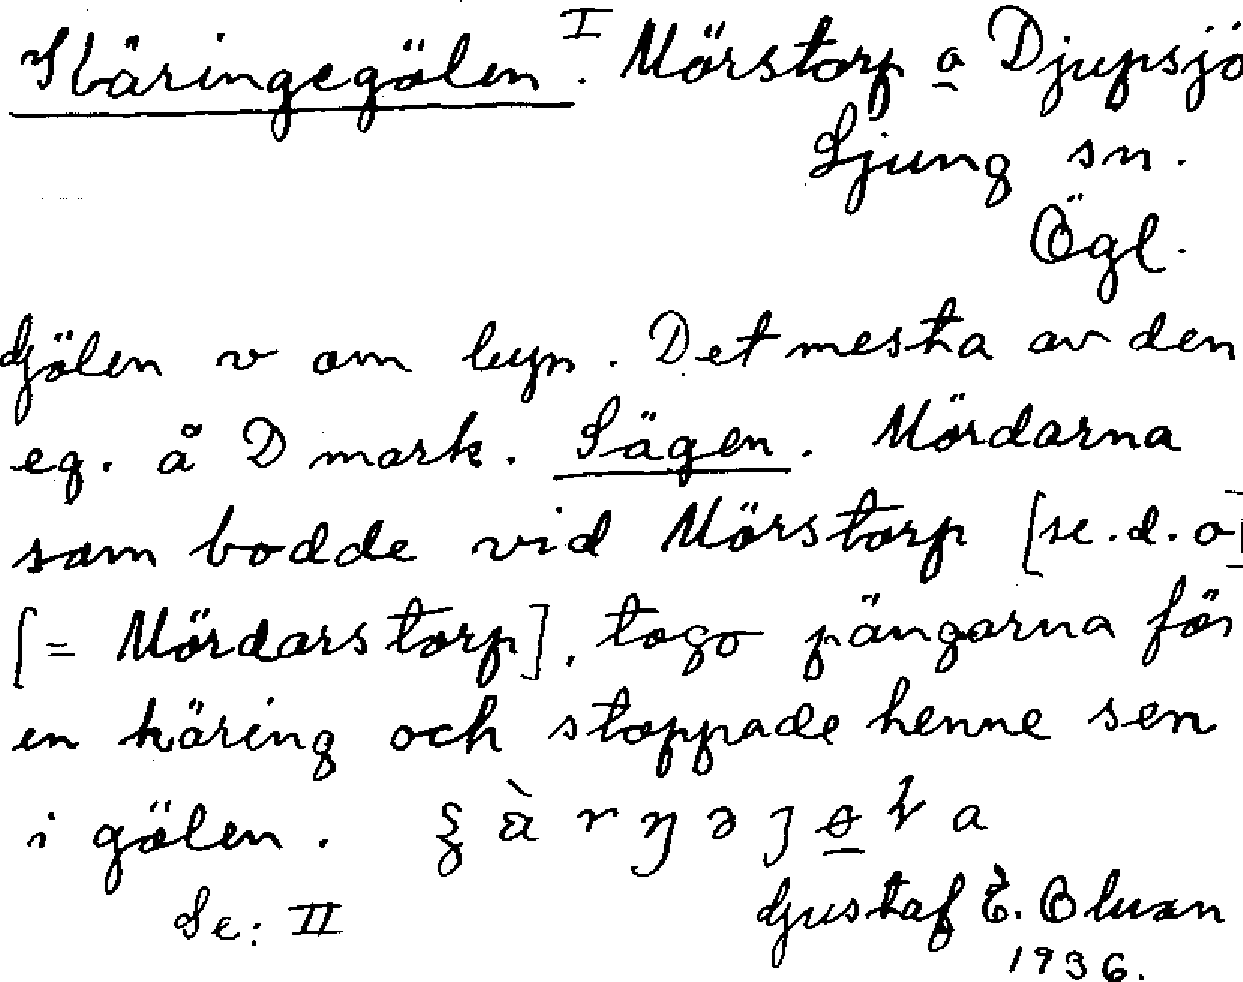 Käringegölen. I Mörstorp o Djupsjö
Ljung sn.
Ögl.
Gölen v om byn. Det mesta av den
eg. å D mark. Sägen. Mördarna
som bodde vid Mörstorp [se.d.o]
[= Mördarstorp], togo pängarna för
en käring och stoppade henne sen
i gölen.
Se: II
Gustaf E.
1936.